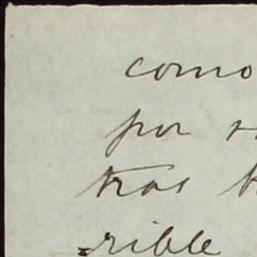 como
por
tras
=rible